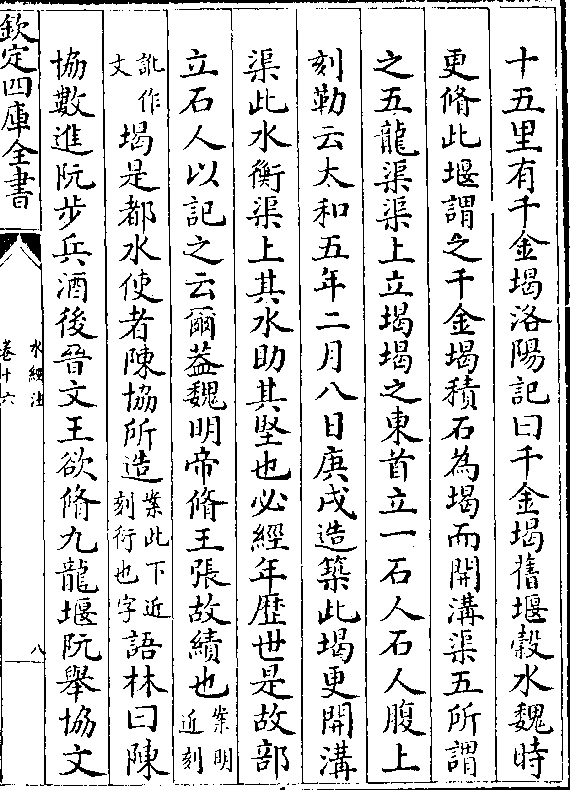 十五里有千金堨洛陽記曰千金堨舊堰穀水魏時
更脩此堰謂之千金堨積石為堨而開溝渠五所謂
之五龍渠渠上立堨堨之東首立一石人石人腹上
刻勒云太和五年二月八日庚戌造築此堨更開溝
渠此水衡渠上其水助其堅也必經年歴世是故部
立石人以記之云爾葢魏明帝脩王張故績也案明近刻
訛作文堨是都水使者陳協所造案此下近刻衍也字語林曰陳
協數進阮步兵酒後晉文王欲脩九龍堰阮舉協文
欽定四庫全書
水經注
卷十六
八